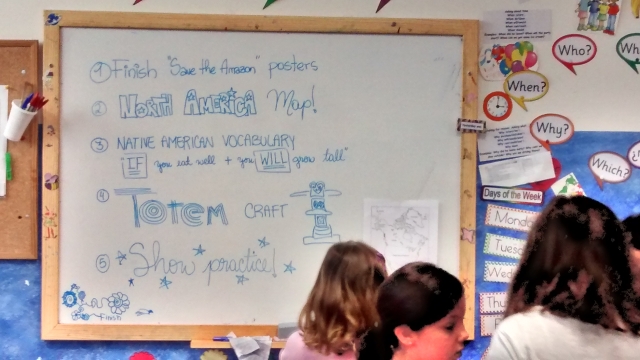 ① Finish "Save the Amazon" posters
② NORTH AMERICA Map!
③ NATIVE AMERICAN VOCABULARY
IF you eat well + you WILL grow tall"
④ Totem CRAFT
⑤ Show practice!
Finish
Who?
When?
Why?
Which?
Days of the Week
Monda
Tues
Wed
Thu